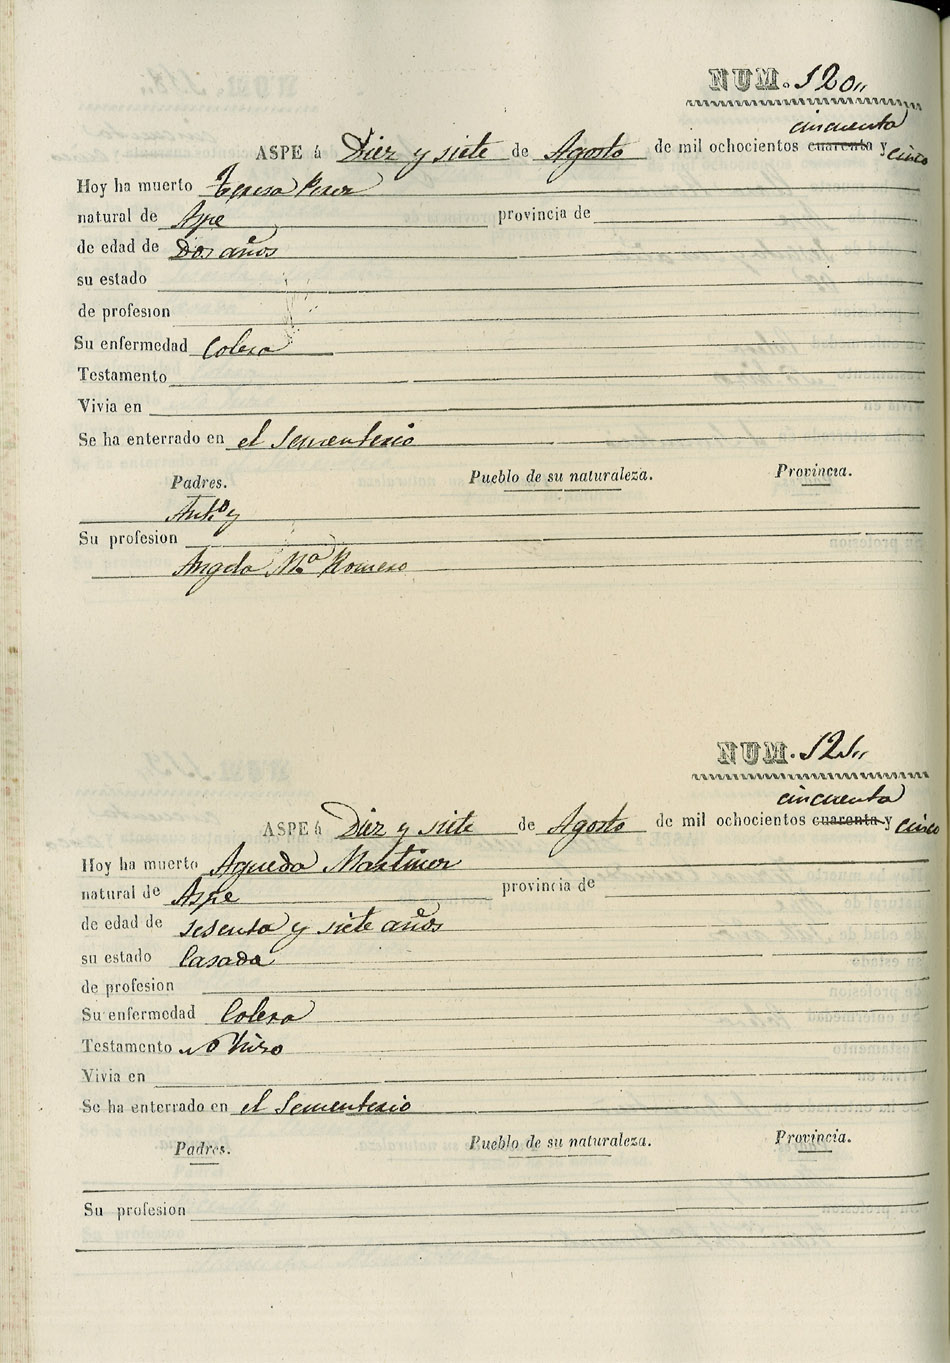 NUM. 120,,
cincuenta
ASPE á Diez y siete de Agosto de mil ochocientos cuarenta y cinco
Hoy ha muerto Teresa Perez
natural de Aspe provincia de
de edad de Dos años
su estado
de profesion
Su enfermedad Colera
Testamento
Vivia en
Se ha enterrado en el Sementerio
Padres. Pueblo de su naturaleza. Provincia.
Antº y
Su profesion
Angela Mª Romero
NUM. 121,,
cincuenta
ASPE á Diez y siete de Agosto de mil ochocientos cuarenta y cinco
Hoy ha muerto Agueda Martinez
natural de Aspe provincia de
de edad de sesenta y siete años
su estado Casada
de profesion
Su enfermedad Colera
Testamento no hizo
Vivia en
Se ha enterrado en el Sementerio
Padres. Pueblo de su naturaleza. Provincia.
Su profesion